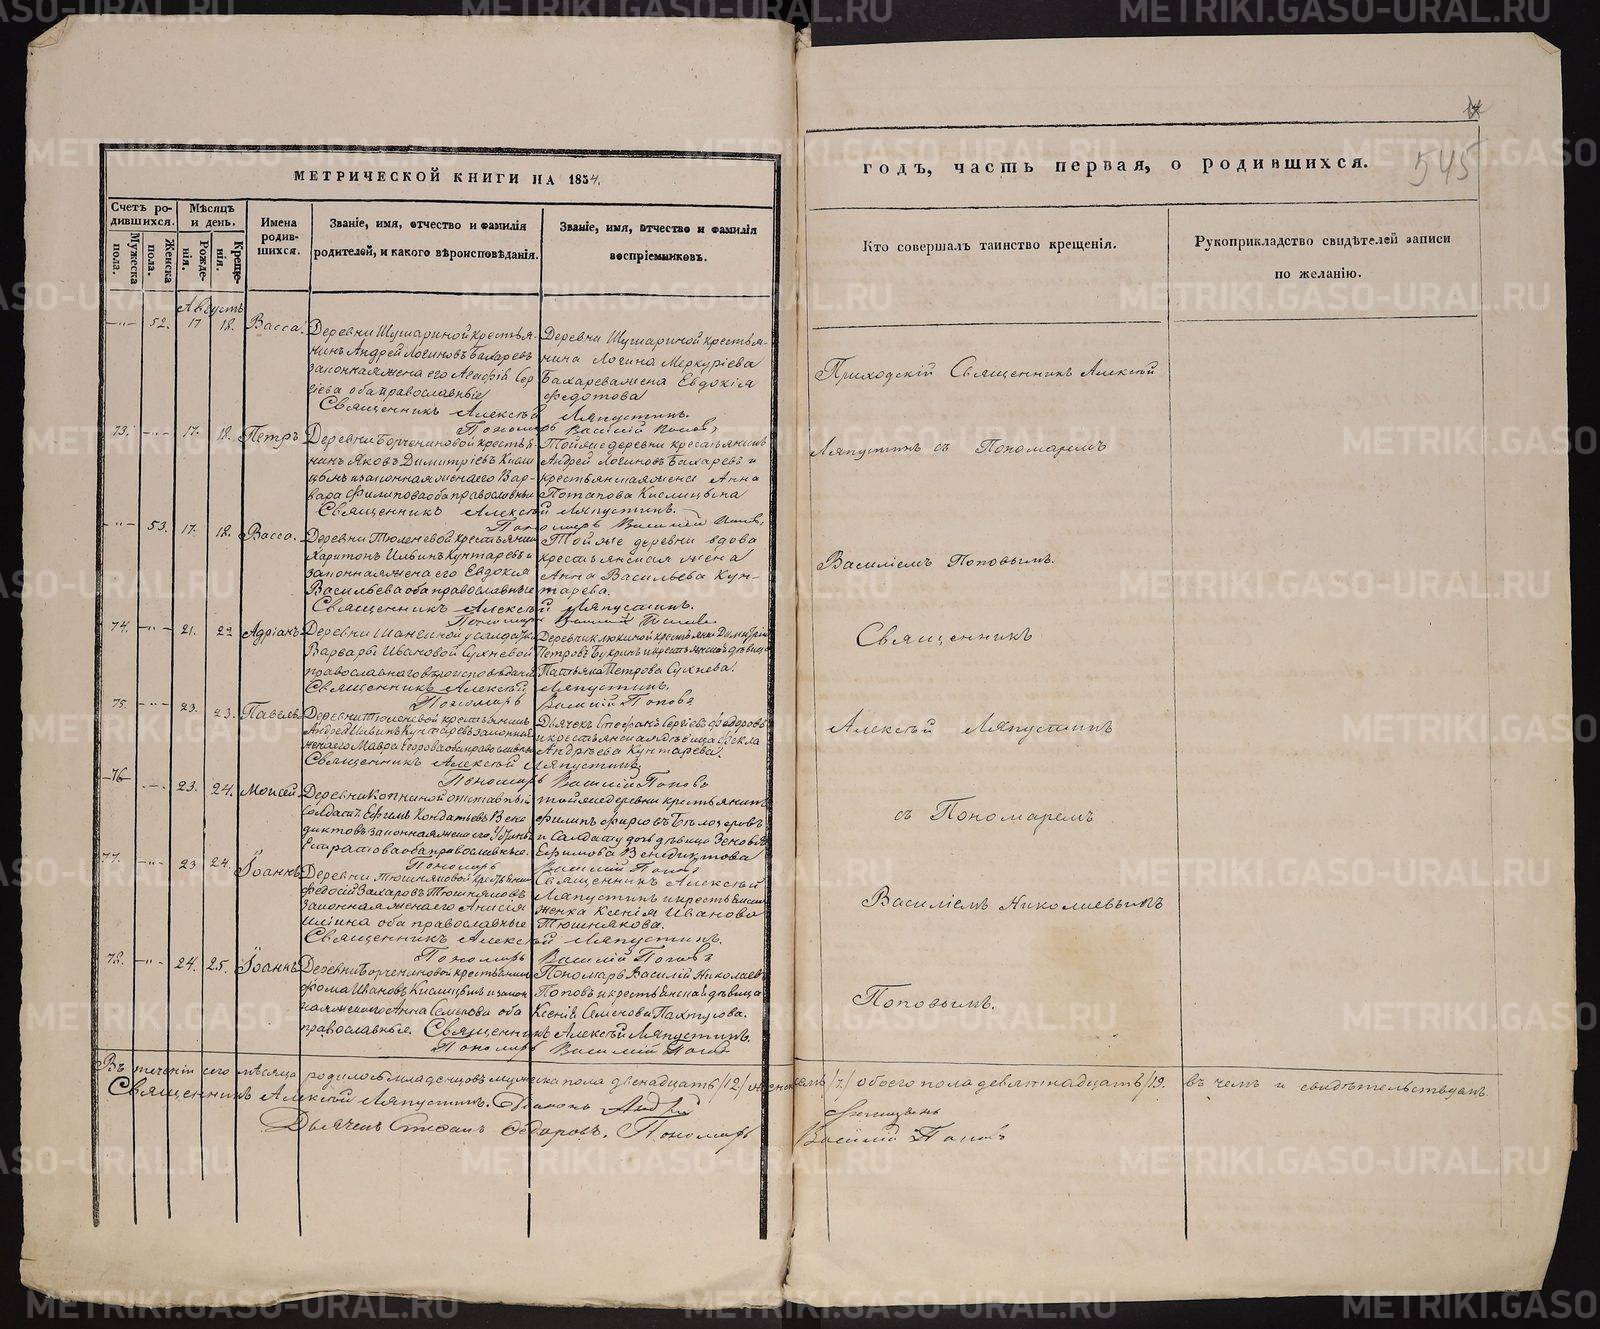 МЕТРИЧЕСКОЙ КНИГИ НА 1854.
годъ, часть первая, о родившихся.
545
Счетъ ро-
дившихся.
Мужеска
пола.
Женска
пола.
Мѣсяцъ
и день.
Рожде-
нія.
Креще-
нія.
Имена
родив-
шихся.
Званіе, имя, отчество и фамилія
родителей, и какого вѣроисповѣданія.
Званіе, имя, отчество и фамилія
воспріемниковъ.
Кто совершалъ таинство крещенія.
Рукоприкладство свидѣтелей записи
по желанію.
Августъ
52. 17 18. Васса.
Деревни Шушариной крестья-
нинъ Андрей Логиновъ Бахаревъ
законная жена его Агафія Сер
гіева оба православные
Деревни Шушариной крестья-
нина Логина Меркуріева
Бахарева жена Евдокія
Федотова
Священникъ Алексѣй Ляпустинъ.
Пономарь Василій Поповъ
73. 17. 18. Петръ
Деревни Борчениновой крестья-
нинъ Яковъ Димитріевъ Кисли
цынъ и законная жена его Вар-
вара Филипова оба православные
Той же деревни крестьянинъ
Андрей Логиновъ Бахаревъ и
крестьянская жена Анна
Потапова Кислицына
Священникъ Алексѣй Ляпустинъ.
Пономарь Василій Поповъ
53. 17. 18. Васса.
Деревни Тюленевой крестьянинъ
Харитонъ Ильинъ Кунгаревъ и
законная жена его Евдокия
Васильева оба православные
Той же деревни вдова
крестьянская жена
Анна Васильева Кун-
гарева.
Священникъ Алексѣй Ляпустинъ.
Пономарь Василій Поповъ
74. 21. 22 Адріанъ.
Варвары Ивановой Сухневой
православнаго вѣроисповѣданія
Петровъ Бухринъ и крестьянская дѣвица
Татьяна Петрова Сухнева.
Священникъ Алексѣй Ляпустинъ.
Пономарь Василій Поповъ
75. 23. 23. Павелъ
Деревни Тюленевой крестьянинъ
Андрей Ильинъ Кунгаревъ законная
жена его Мавра Егорова оба православные
Дьячекъ Стефанъ Сергіевъ Федоровъ
и крестьянская дѣвица Фекла
Андреева Кунгарева.
Священникъ Алексѣй Ляпустинъ
Пономарь Василій Поповъ
76 23. 24. Моисей
Деревни Копниной отставный
солдатъ Ефимъ Кондратьевъ Вене
диктовъ законная жена его
Естратова оба православные.
той же деревни крестьянинъ
Филипъ Фирсовъ Бѣлозеровъ
и Солдатская дочь дѣвица Зеновія
Ефимова Венедиктова
Пономарь Василій Поповъ
77. 23 24. Іоаннъ
Деревни Тюшняковой крестьянинъ
Федосій Захаровъ Тюшняковъ
законная жена его Анисія
Илиина оба православные
Священникъ Алексѣй
Ляпустинъ и крестьянская
женка Ксенія Иванова
Тюшнякова.
Священникъ Алексѣй Ляпустинъ.
Пономарь Василій Поповъ
78. 24. 25. Іоаннъ
Деревни Борчениновой крестьянинъ
Фома Ивановъ Кислицынъ и закон
ная жена его Анна Семенова оба
православные.
Пономарь Василій Николаевъ
Поповъ и крестьянская дѣвица
Ксенія Семенова Пахтусова.
Священникъ Алексѣй Ляпустинъ.
Пономарь Василій Поповъ
Приходскій Священникъ Алексѣй
Ляпустинъ съ Пономаремъ
Василіемъ Поповымъ.
Священникъ
Алексѣй Ляпустинъ
съ Пономаремъ
Василіемъ Николаевымъ
Поповымъ.
Въ теченіи сего мѣсяца родилось младенцовъ мужеска пола двенадцать /12/ женска семь /7/ обоего пола девятнадцать /19. въ чемъ и свидѣтельствуемъ
Священникъ Алексѣй Ляпустинъ. Діаконъ Андрей
Дьячекъ Стефанъ Федоровъ. Пономарь Василій Поповъ
METRIKI.GASO-URAL.RU